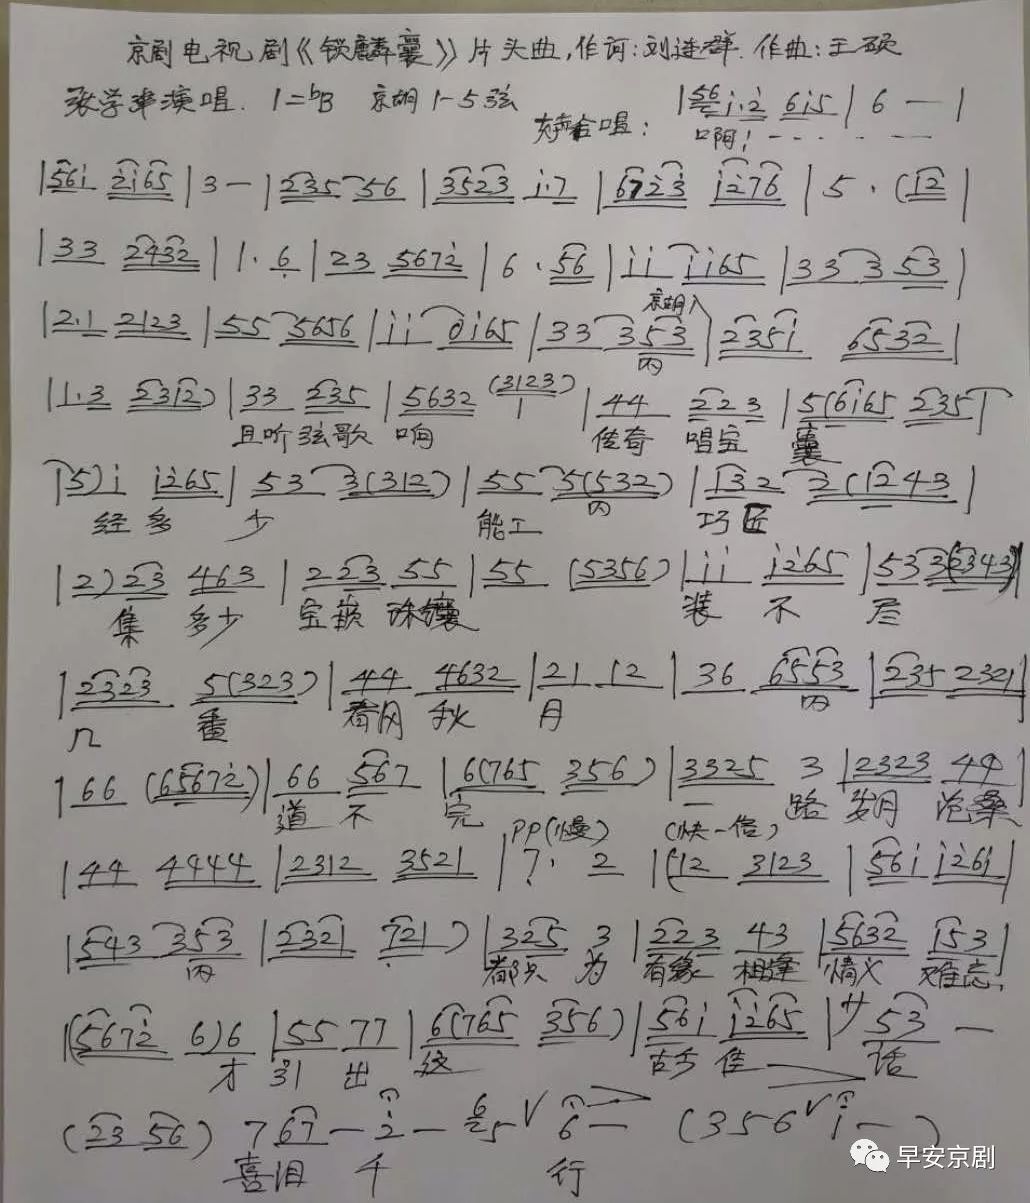 京剧电视剧《锁麟囊》片头曲,作词:刘连群.作曲:王硕
张学津演唱. 1=bB 京胡1-5弦
伴唱: |56i·2 6i5|6 —|
啊! - - - - -
|56i 2i65|3—|235 56|3523 i·7|6723 i276|5·(12|
|33 2432|1·6|23 5672|6·56|ii ii65|33 353|
京胡入
|2·1 2123|55 5656|ii 0i65|33 353|235i 6532|
内
|1·3 2312)|33 235|5632 (3123)1|44 223|5(6i65 235|
且听弦歌 咱 传奇 唱宝 囊
|5)i i265|53 3(312)|55 5(532)|132 2(1243|
经多 少 能工 内 巧匠
|2)23 463|223 55|55 (5356)|ii i265|533(2343)|
集 多少 宝嵌 珠镶 装 不 尽
|2323 5(323)|44 4632|21 12|36 6553|235 2321|
几 番 春风 秋 月 内
|66 (65672)|66 567|6(765 356)|3325 3|2323 44|
道 不 完 一 路 岁月 沧桑
PP(慢) (快一倍)
|44 4444|2312 3521|7· 2|(12 3123|56i i26i|
|543 353|2321 721)|325 3|223 43|5632 153|
内 都只 为 有缘 相逢 情义 难忘,
|(5672 6)6|55 77|6(765 356)|56i i265|サ53 —
才 引 出 这 古今 佳 话
(23 56) 7 67 — 2 — 6 5 ∨ 6 — (356∨i—)
喜泪 千 行
早安京剧